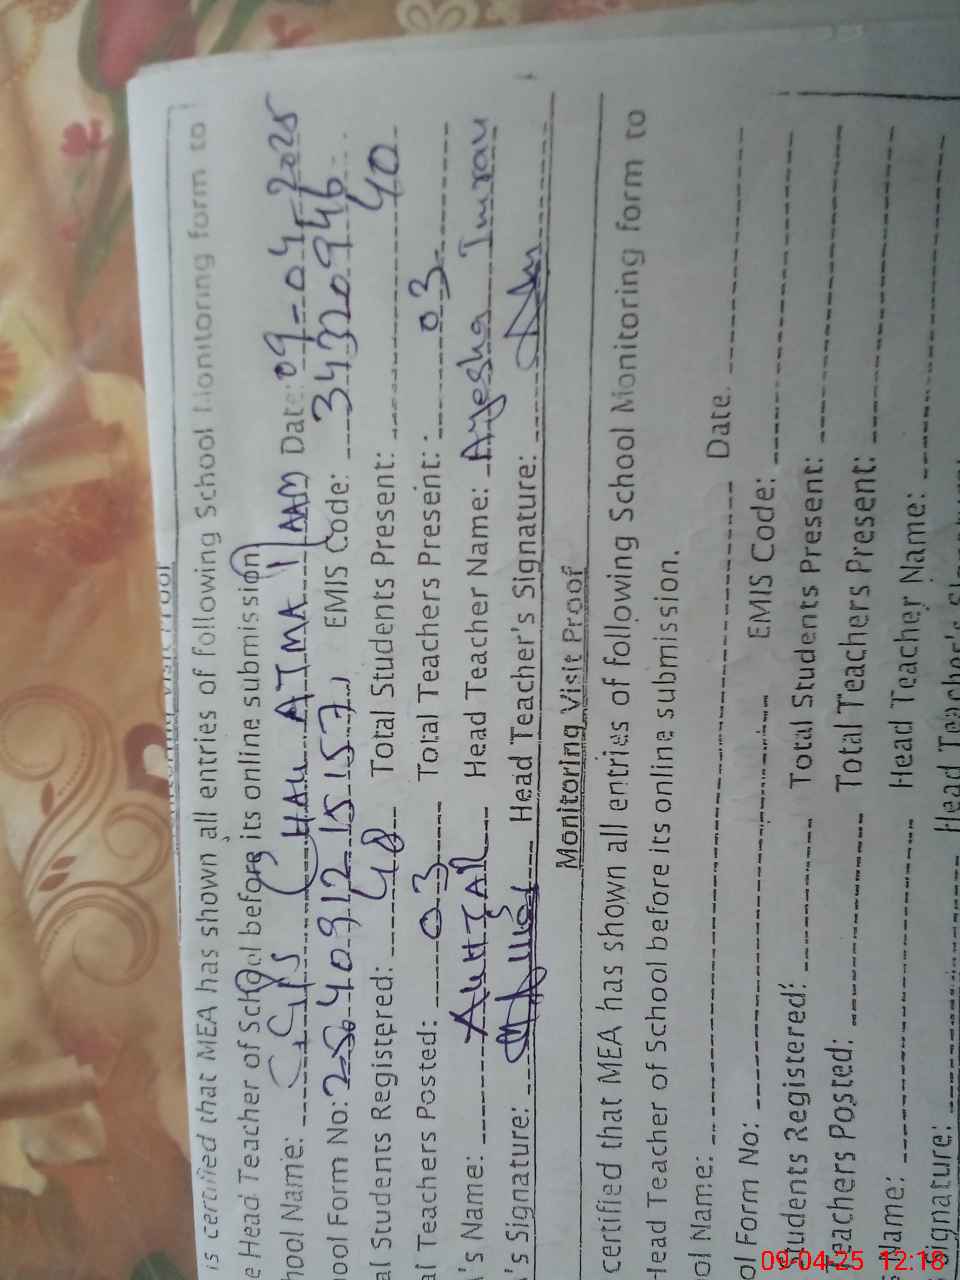 is certified that MEA has shown all entries of following School Monitoring form to
e Head Teacher of School before its online submission
hool Name: GGPS CHAH ATMA Date: 09-04-2025
ool Form No: EMIS Code: 34320946
al Students Registered: 48 Total Students Present: 40
al Teachers Posted: 03 Total Teachers Present: 03
's Name: Head Teacher Name: Ayesha Imran
's Signature: Head Teacher's Signature:
Monitoring Visit Proof
certified that MEA has shown all entries of following School Monitoring form to
Head Teacher of School before its online submission.
ol Name: Date.
ol Form No: EMIS Code:
Students Registered: Total Students Present:
Teachers Posted: Total Teachers Present:
Name: Head Teacher Name:
Signature: Head Teacher's
09-04-25 12:18